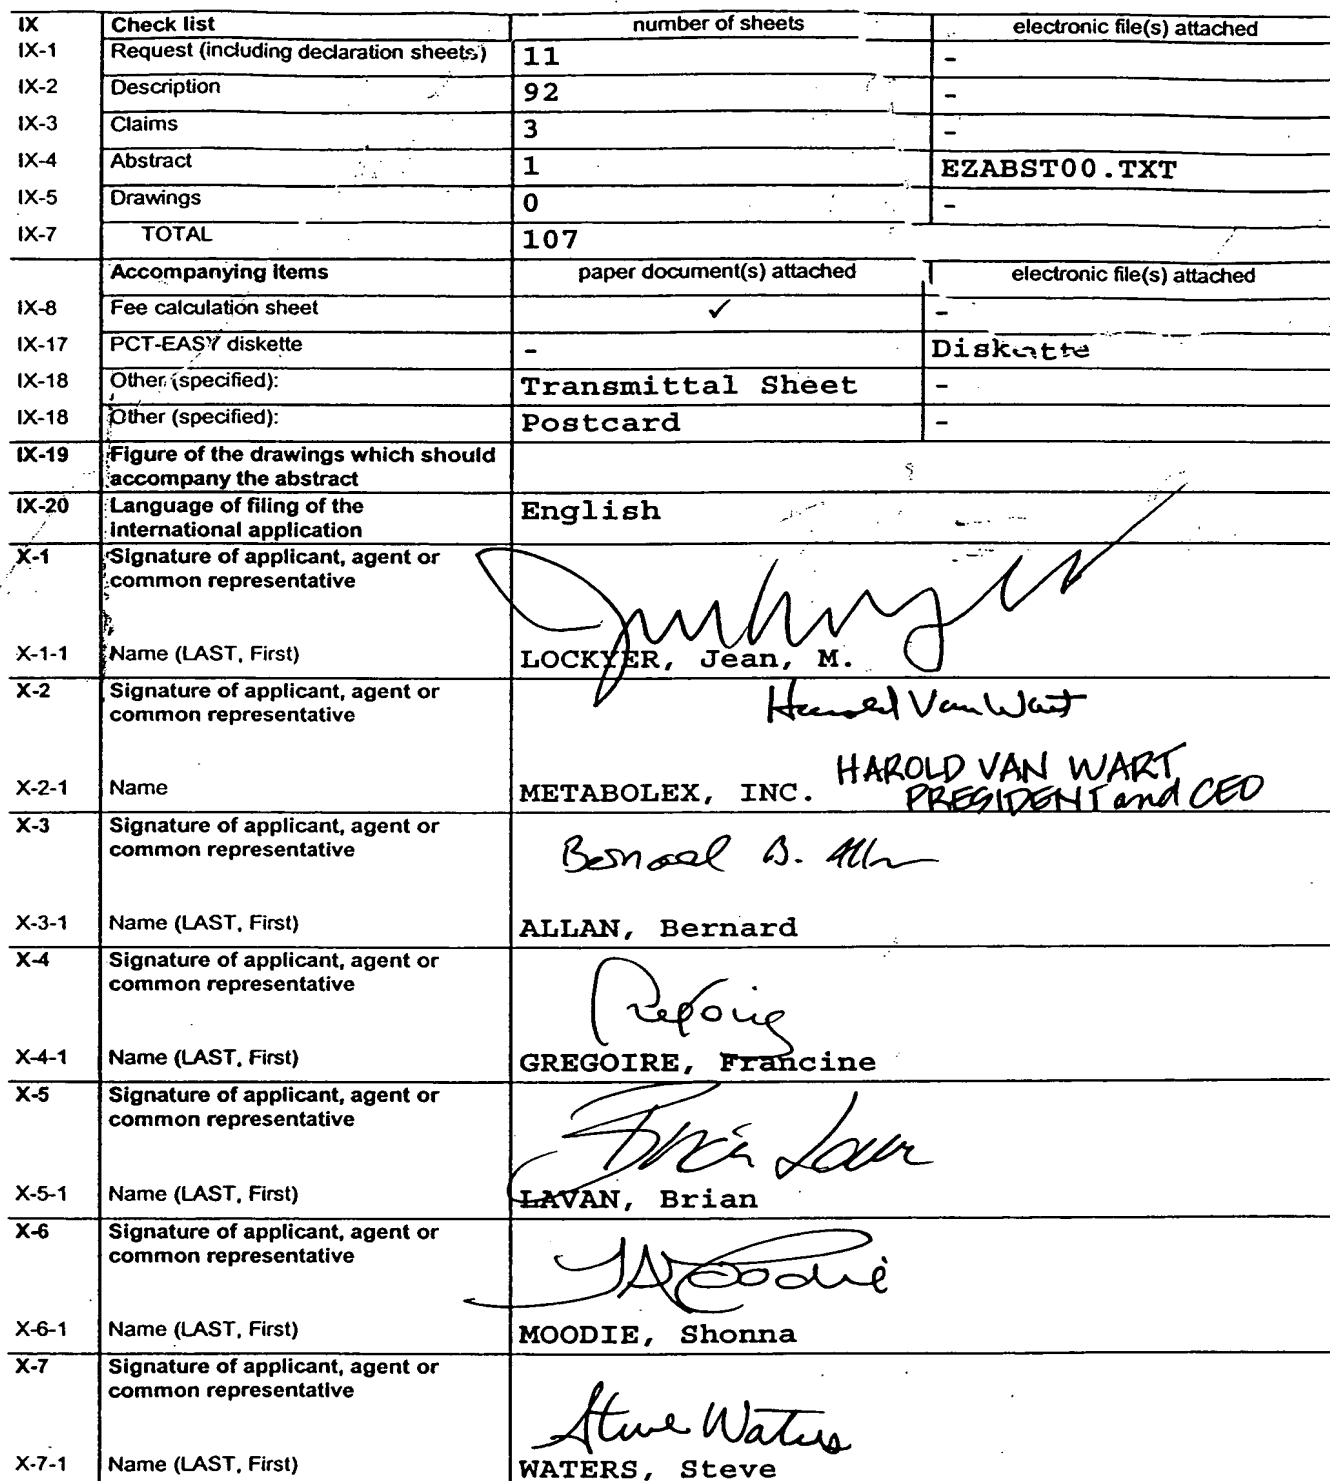 IX Check list number of sheets electronic file(s) attached
IX-1 Request (including declaration sheets) 11 -
IX-2 Description 92 -
IX-3 Claims 3 -
IX-4 Abstract 1 EZABST00.TXT
IX-5 Drawings 0 -
IX-7 TOTAL 107
Accompanying items paper document(s) attached electronic file(s) attached
IX-8 Fee calculation sheet ✓ -
IX-17 PCT-EASY diskette - Diskette
IX-18 Other (specified): Transmittal Sheet -
IX-18 Other (specified): Postcard -
IX-19 Figure of the drawings which should
accompany the abstract
IX-20 Language of filing of the English
international application
X-1 Signature of applicant, agent or
common representative
X-1-1 Name (LAST, First) LOCKYER, Jean, M.
X-2 Signature of applicant, agent or Harold Van Wart
common representative
HAROLD VAN WART
X-2-1 Name METABOLEX, INC. PRESIDENT and CEO
X-3 Signature of applicant, agent or
common representative Bernard B. Allan
X-3-1 Name (LAST, First) ALLAN, Bernard
X-4 Signature of applicant, agent or
common representative
X-4-1 Name (LAST, First) GREGOIRE, Francine
X-5 Signature of applicant, agent or
common representative Brian Lavan
X-5-1 Name (LAST, First) LAVAN, Brian
X-6 Signature of applicant, agent or
common representative Moodie
X-6-1 Name (LAST, First) MOODIE, Shonna
X-7 Signature of applicant, agent or
common representative
Steve Waters
X-7-1 Name (LAST, First) WATERS, Steve